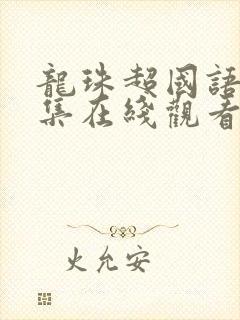 龍珠超國語
集在綫觀看
火允安